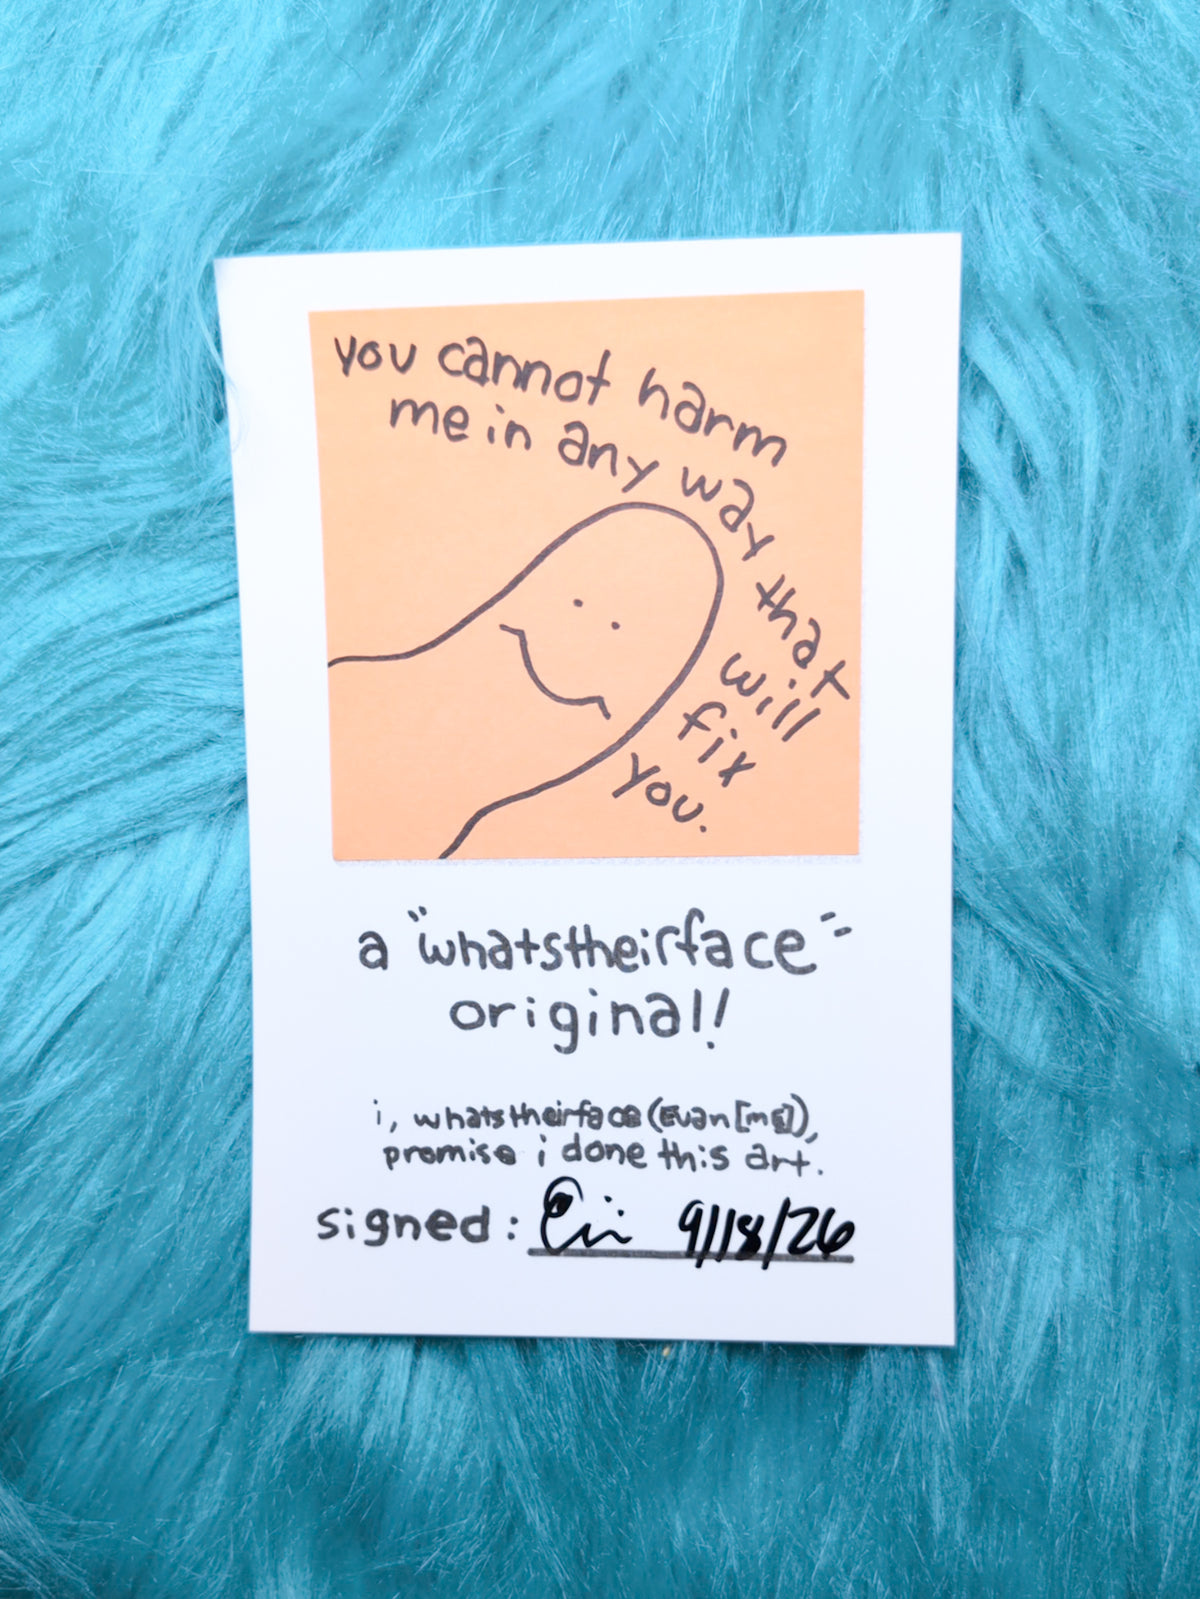 you cannot harm
me in any way that
will
fix
you.
a "whatstheirface"
original!
i, whatstheirface (Evan [me]),
promise i done this art.
signed: 9/18/26